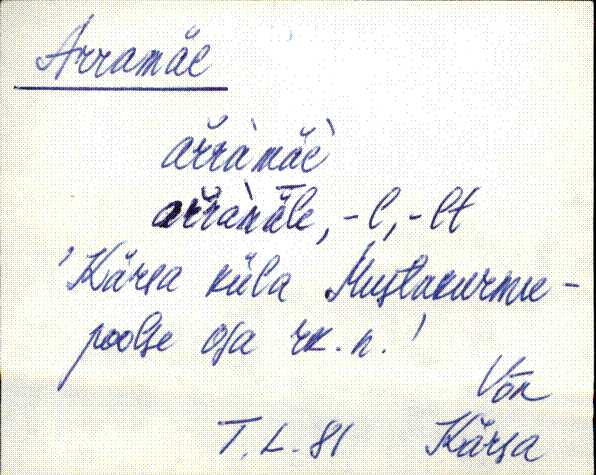 Arramäe
ar̆ràmäè
ar̆ràmä̀le, -l, -lt
'Kärsa küla Mustakurmu-
poolse osa rk. n.'
Võn
T. L. 81 Kärsa